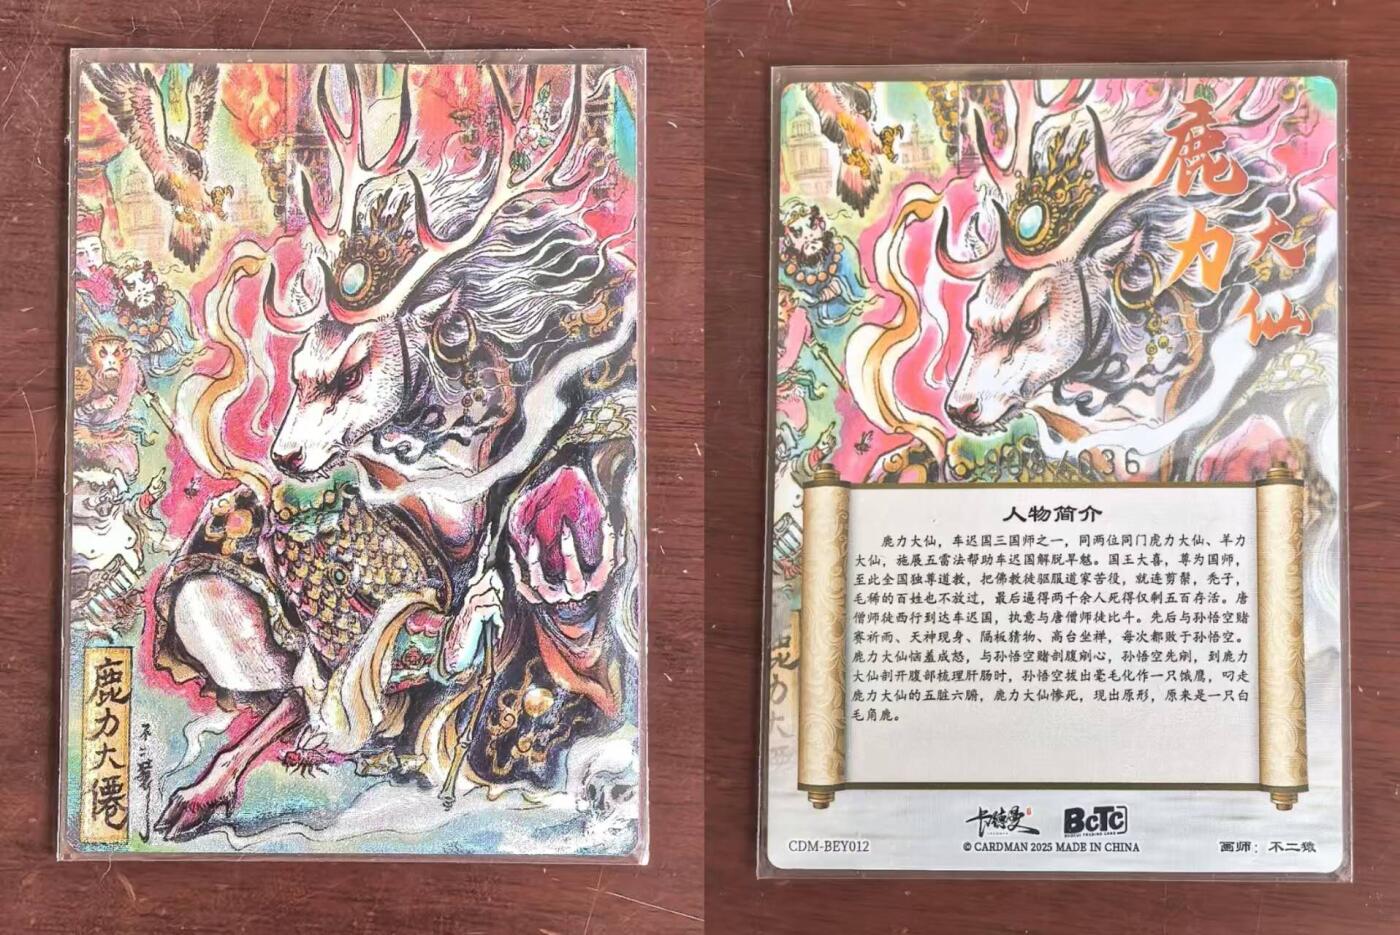 鹿力大僊
不二
鹿力
大仙
/036
人物简介
鹿力大仙，车迟国三国师之一，同两位同门虎力大仙、羊力
大仙，施展五雷法帮助车迟国解脱旱魃。国王大喜，尊为国师，
至此全国独尊道教，把佛教徒驱服道家苦役，就连剪鬃，秃子，
毛稀的百姓也不放过，最后逼得两千余人死得仅剩五百存活。唐
僧师徒西行到达车迟国，执意与唐僧师徒比斗。先后与孙悟空赌
赛祈雨、天神现身、隔板猜物、高台坐禅，每次都败于孙悟空。
鹿力大仙恼羞成怒，与孙悟空赌剖腹剜心，孙悟空先剜，到鹿力
大仙剖开腹部梳理肝肠时，孙悟空拔出毫毛化作一只饿鹰，叼走
鹿力大仙的五脏六腑，鹿力大仙惨死，现出原形，原来是一只白
毛角鹿。
卡德曼
BCTC
CDM-BEY012
© CARDMAN 2025 MADE IN CHINA
画师：不二猿